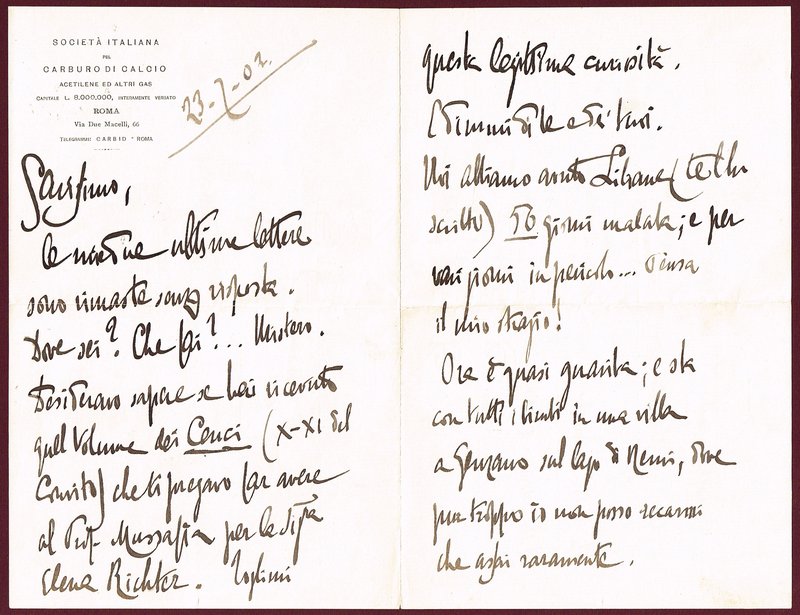 SOCIETÀ ITALIANA
PEL
CARBURO DI CALCIO
ACETILENE ED ALTRI GAS
CAPITALE L. 8.000.000, INTERAMENTE VERSATO
ROMA
Via Due Macelli, 66
TELEGRAMMI: CARBID - ROMA
23-7-02
le mie due ultime lettere
sono rimaste senza risposta.
Dove sei? Che fai?... Mistero.
Desideravo sapere se hai ricevuto
quel volume dei Cenci (X-XI del
Convito) che ti pregavo far avere
al Prof. Mussafia per la Sig.ra
Elena Richter. Toglimi
questa legittima curiosità.
E dimmi di te e de' tuoi.
Noi abbiamo avuto Liliana (te l'ho
scritto) 56 giorni malata; e per
vari giorni in pericolo... Pensa
il mio strazio!
Ora è quasi guarita; e sta
con tutti i bimbi in una villa
a Genzano sul lago di Nemi, dove
pur troppo io non posso recarmi
che assai raramente.